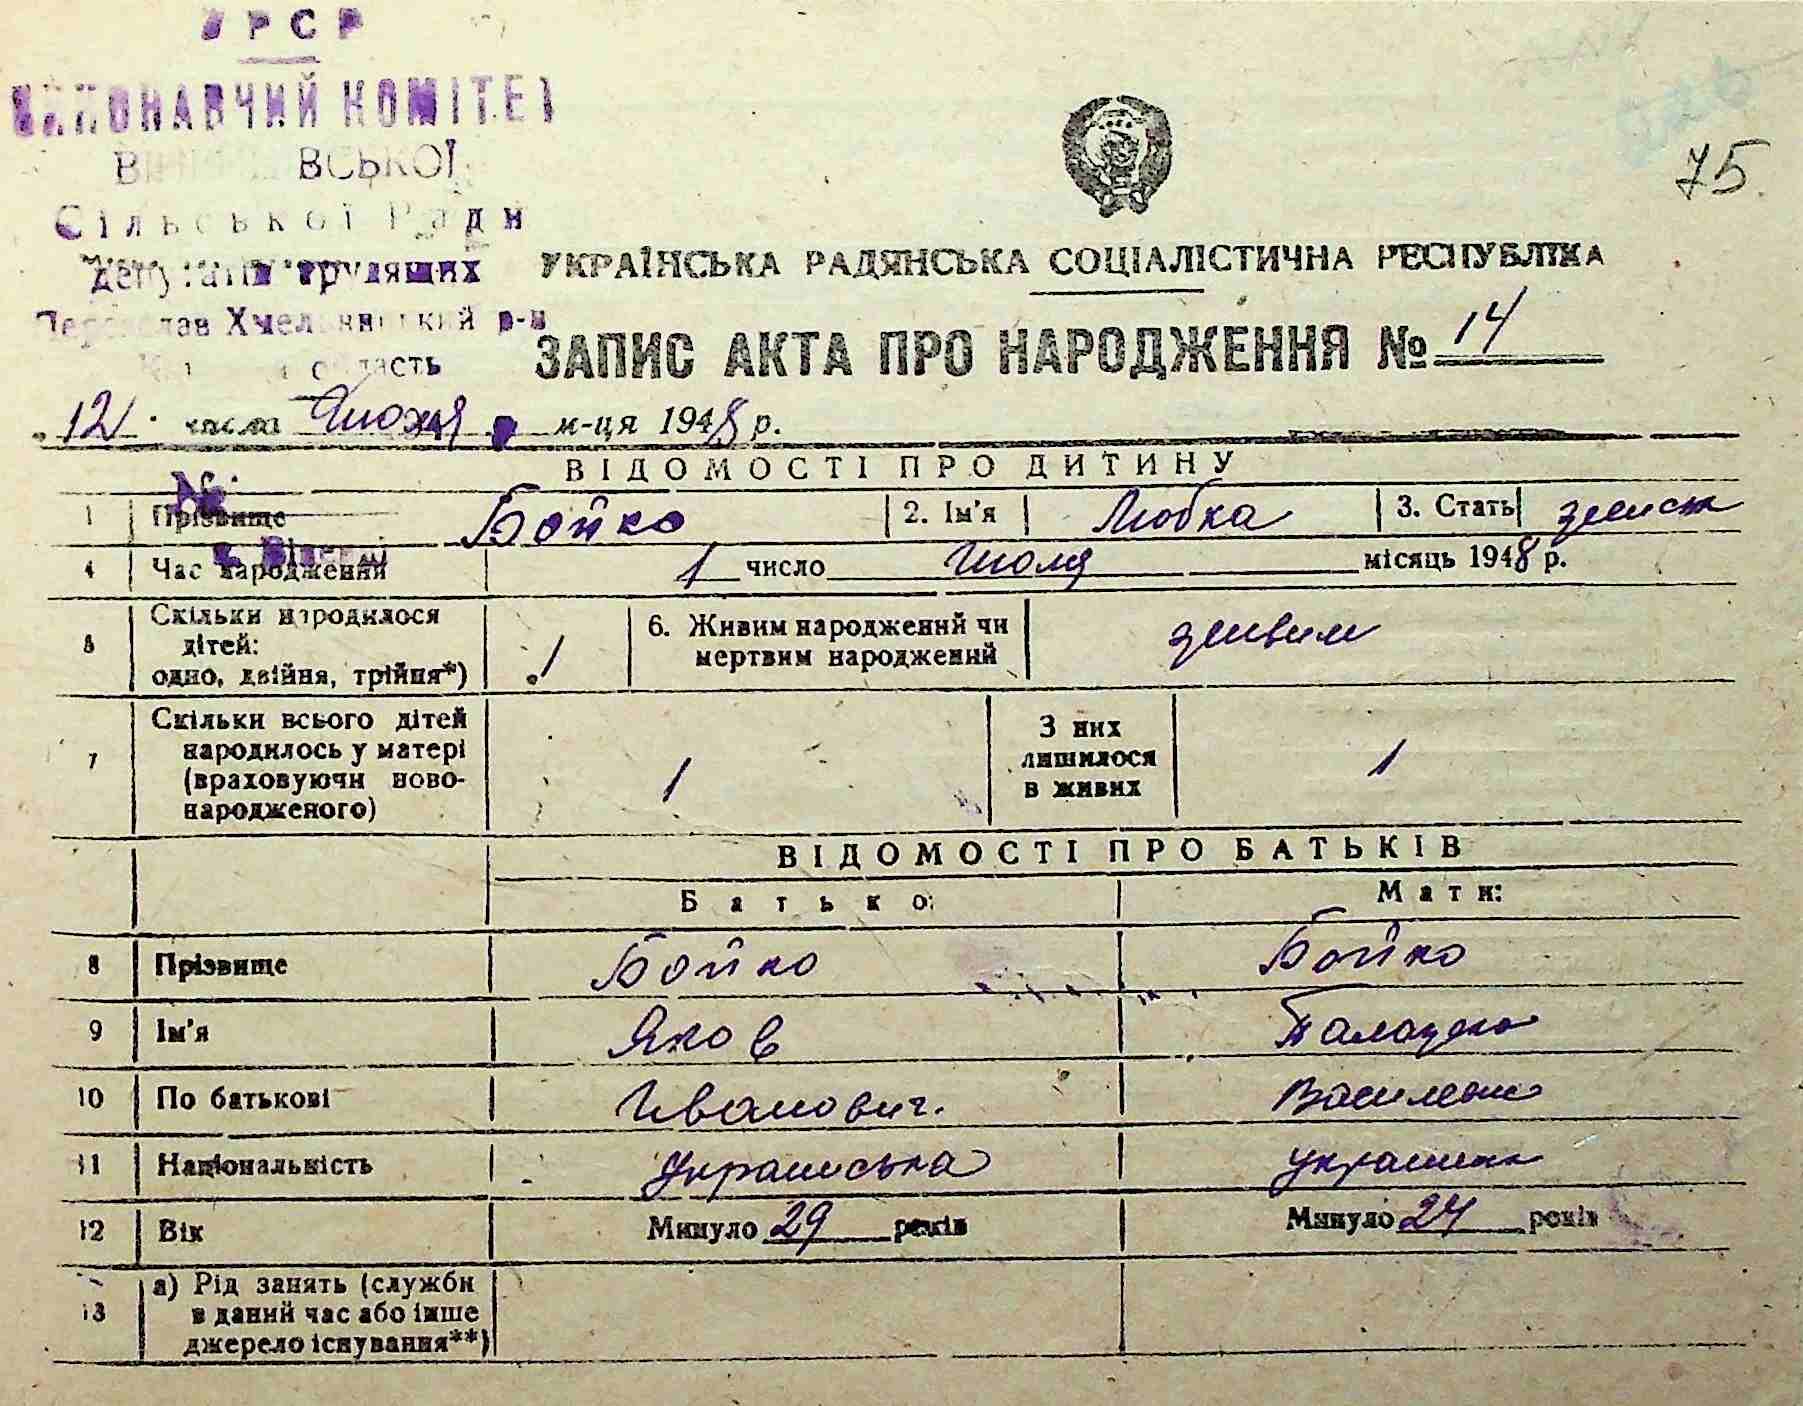 УРСР
ВИКОНАВЧИЙ КОМІТЕТ
ВСЬКОЇ
Сільської Ради
депутатів трудящих
Переяслав Хмельницький р-н
область
75
УКРАЇНСЬКА РАДЯНСЬКА СОЦІАЛІСТИЧНА РЕСПУБЛІКА
ЗАПИС АКТА ПРО НАРОДЖЕННЯ № 14
12 числа Июля м-ця 1948 р.
ВІДОМОСТІ ПРО ДИТИНУ
№
1 Прізвище Бойко 2. Ім'я Любка 3. Стать женск
4 Час народження 1 число Июля місяць 1948 р.
5 Скільки народилося дітей: одно, двійня, трійня*) 1 6. Живим народжений чи мертвим народжений живим
7 Скільки всього дітей народилось у матері (враховуючи новонародженого) 1 З них лишилося в живих 1
ВІДОМОСТІ ПРО БАТЬКІВ
Батько: Мати:
8 Прізвище Бойко Бойко
9 Ім'я Яков Палажка
10 По батькові Иванович. Василевна
11 Національність Украинська украинка
12 Вік Минуло 29 років Минуло 24 років
13 а) Рід занять (служби
в даний час або інше
джерело існування**)